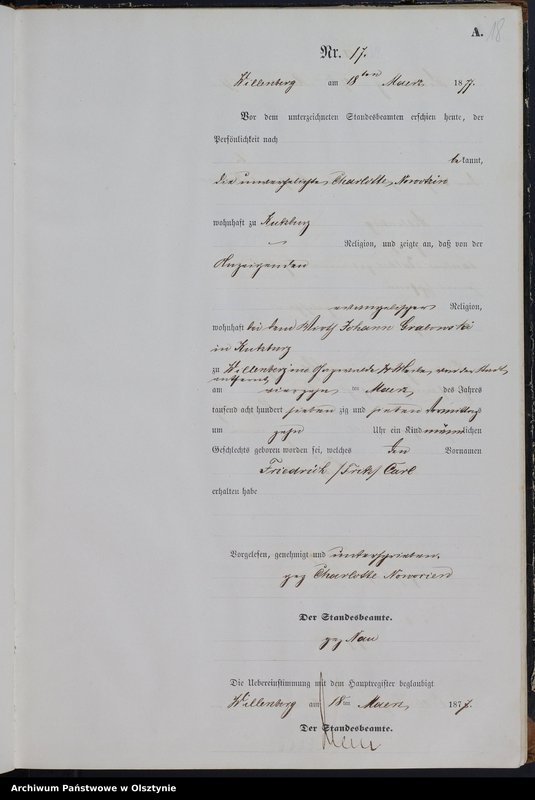 A. 18
Nr. 17.
Willenberg am 18ten Maerz 1877.
Vor dem unterzeichneten Standesbeamten erschien heute, der
Persönlichkeit nach
bekannt,
die unverehelichte Charlotte
wohnhaft zu Kutzburg
Religion, und zeigte an, daß von der
Anzeigenden
evangelischer Religion,
wohnhaft bei dem Wirth Johann Grabowski
in Kutzburg
zu Willenberg im
entfernt
am vierzehn ten Maerz des Jahres
tausend acht hundert sieben zig und sieben Vormittags
um zehn Uhr ein Kind männlichen
Geschlechts geboren worden sei, welches den Vornamen
Friedrich /Fritz/ Carl
erhalten habe
Vorgelesen, genehmigt und unterschrieben.
gez Charlotte
Der Standesbeamte.
gez Nau
Die Uebereinstimmung mit dem Hauptregister beglaubigt
Willenberg am 18ten Maerz 1877.
Der Standesbeamte.
Archiwum Państwowe w Olsztynie